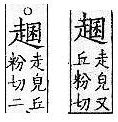 走皃又
丘粉切
○
走皃丘
粉切二